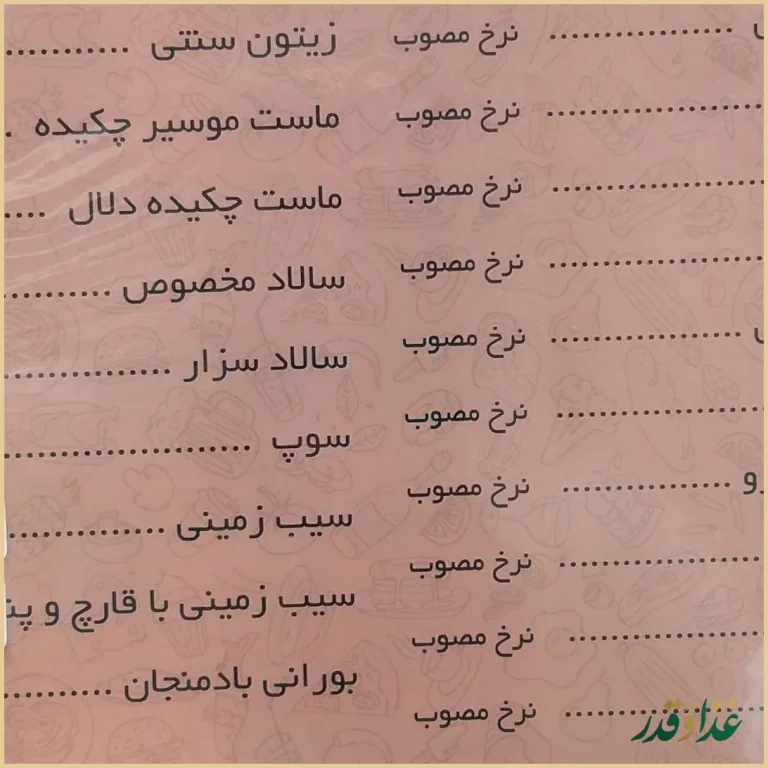 نرخ مصوب
نرخ مصوب
نرخ مصوب
نرخ مصوب
نرخ مصوب
نرخ مصوب
نرخ مصوب
نرخ مصوب
نرخ مصوب
نرخ مصوب
زیتون سنتی ...........
ماست موسیر چکیده .
ماست چکیده دلال ....
سالاد مخصوص ..........
سالاد سزار ................
سوپ ........................
سیب زمینی ...............
سیب زمینی با قارچ و
بورانی بادمنجان ...........
غذا و قدر